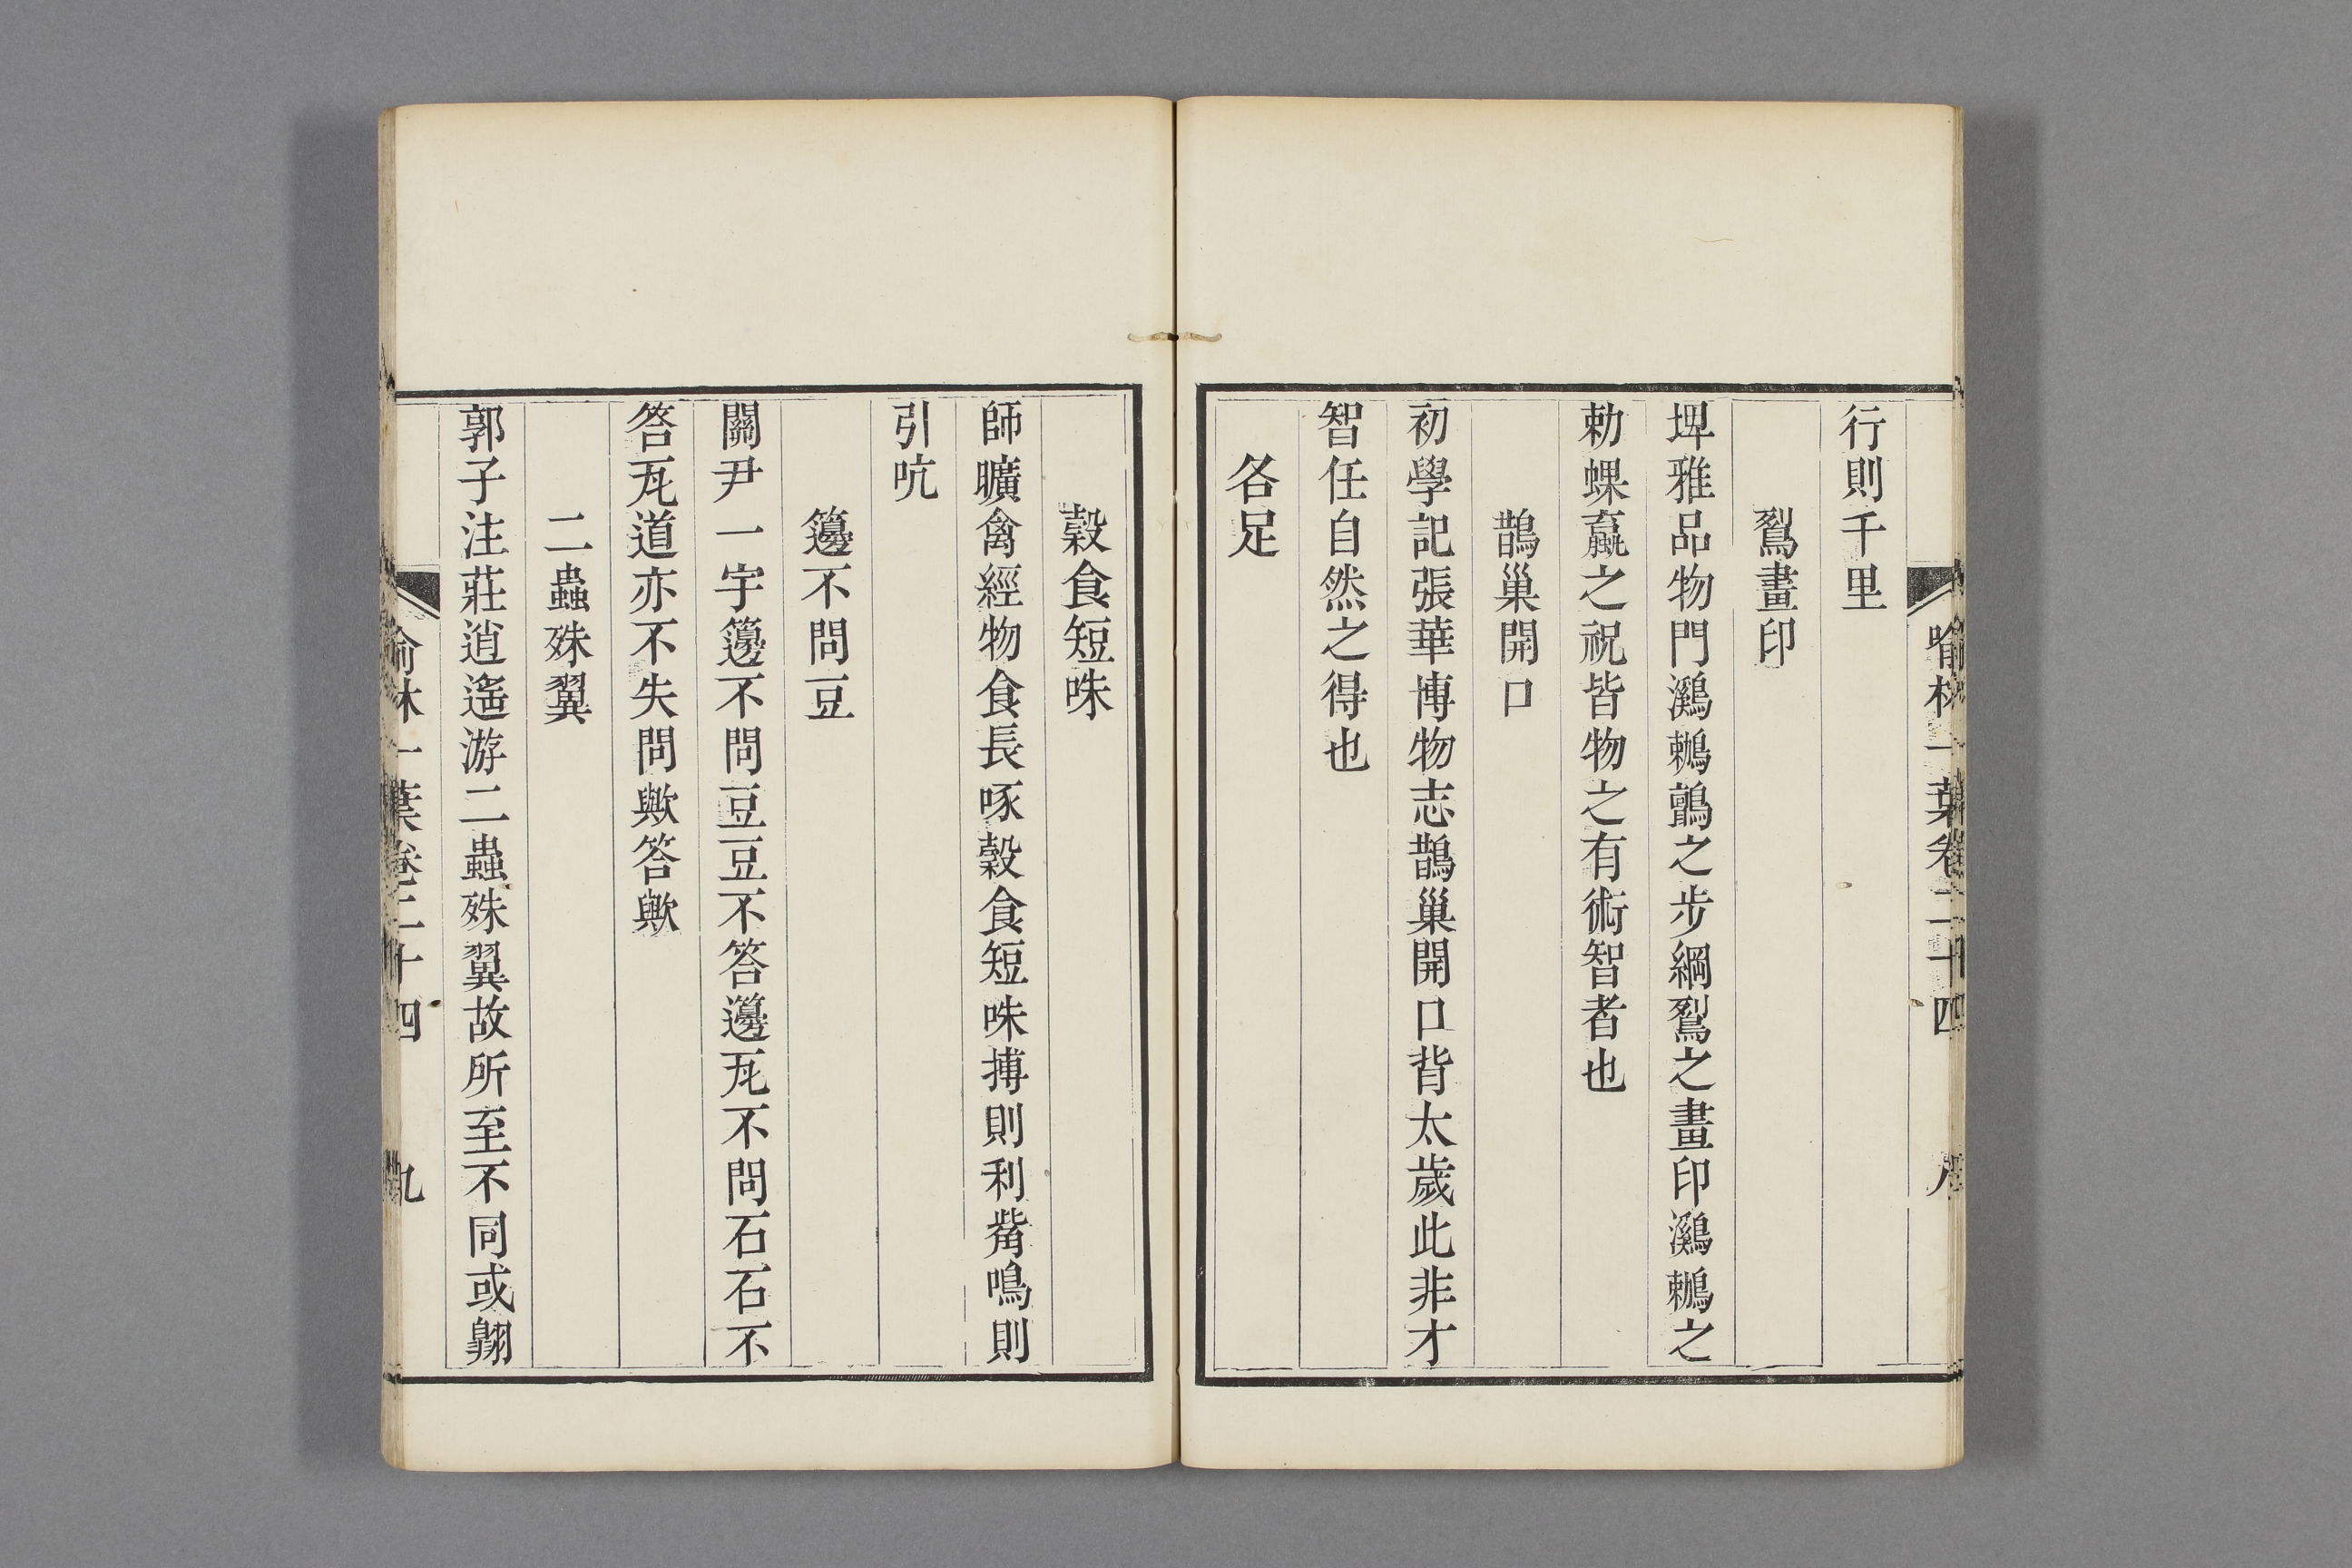 喻林一葉卷二十四
行則千里
鴷畫印
埤雅品物門鸂鶒鸇之步綱鴷之畫印鸂鶒之
勅蜾蠃之祝皆物之有術智者也
鵲巢開口
初學記張華博物志鵲巢開口背太歲此非才
智任自然之得也
各足
穀食短咮
師曠禽經物食長啄穀食短咮搏則利觜鳴則
引吭
籩不問豆
關尹一宇籩不問豆豆不答籩瓦不問石石不
答瓦道亦不失問歟答歟
二蟲殊翼
郭子注莊逍遙游二蟲殊翼故所至不同或翺
喻林一葉卷二十四
九